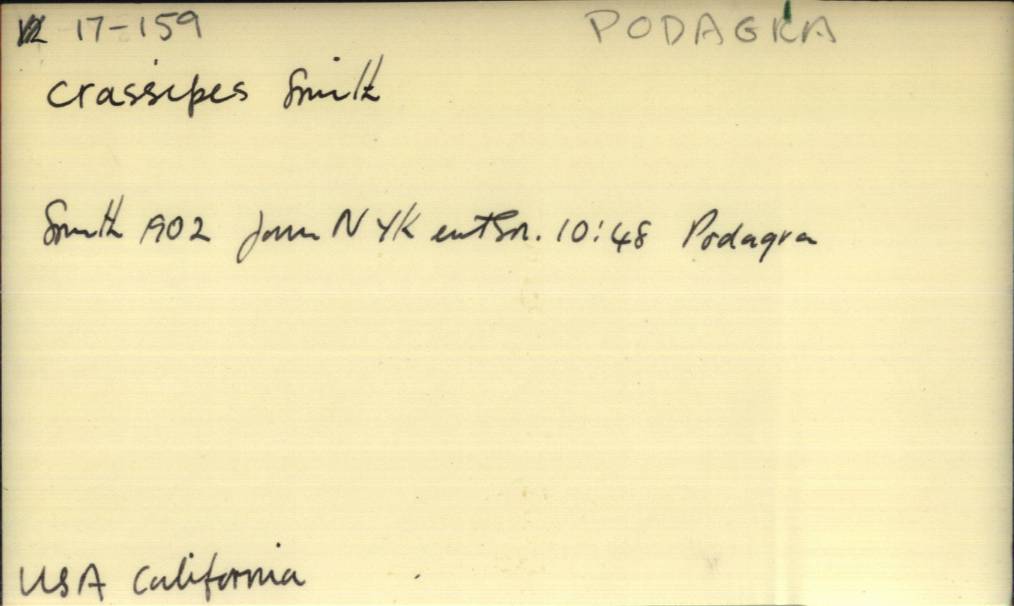 17-159 PODAGRA
crassipes Smith
Smith 1902 Journ N Yk ent Soc. 10:48 Podagra
USA California